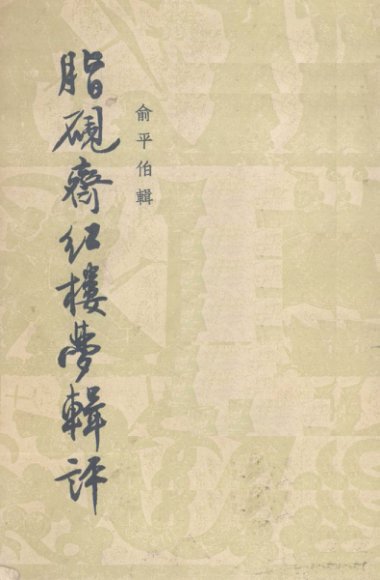 脂硯齋红樓夢輯評
俞平伯輯